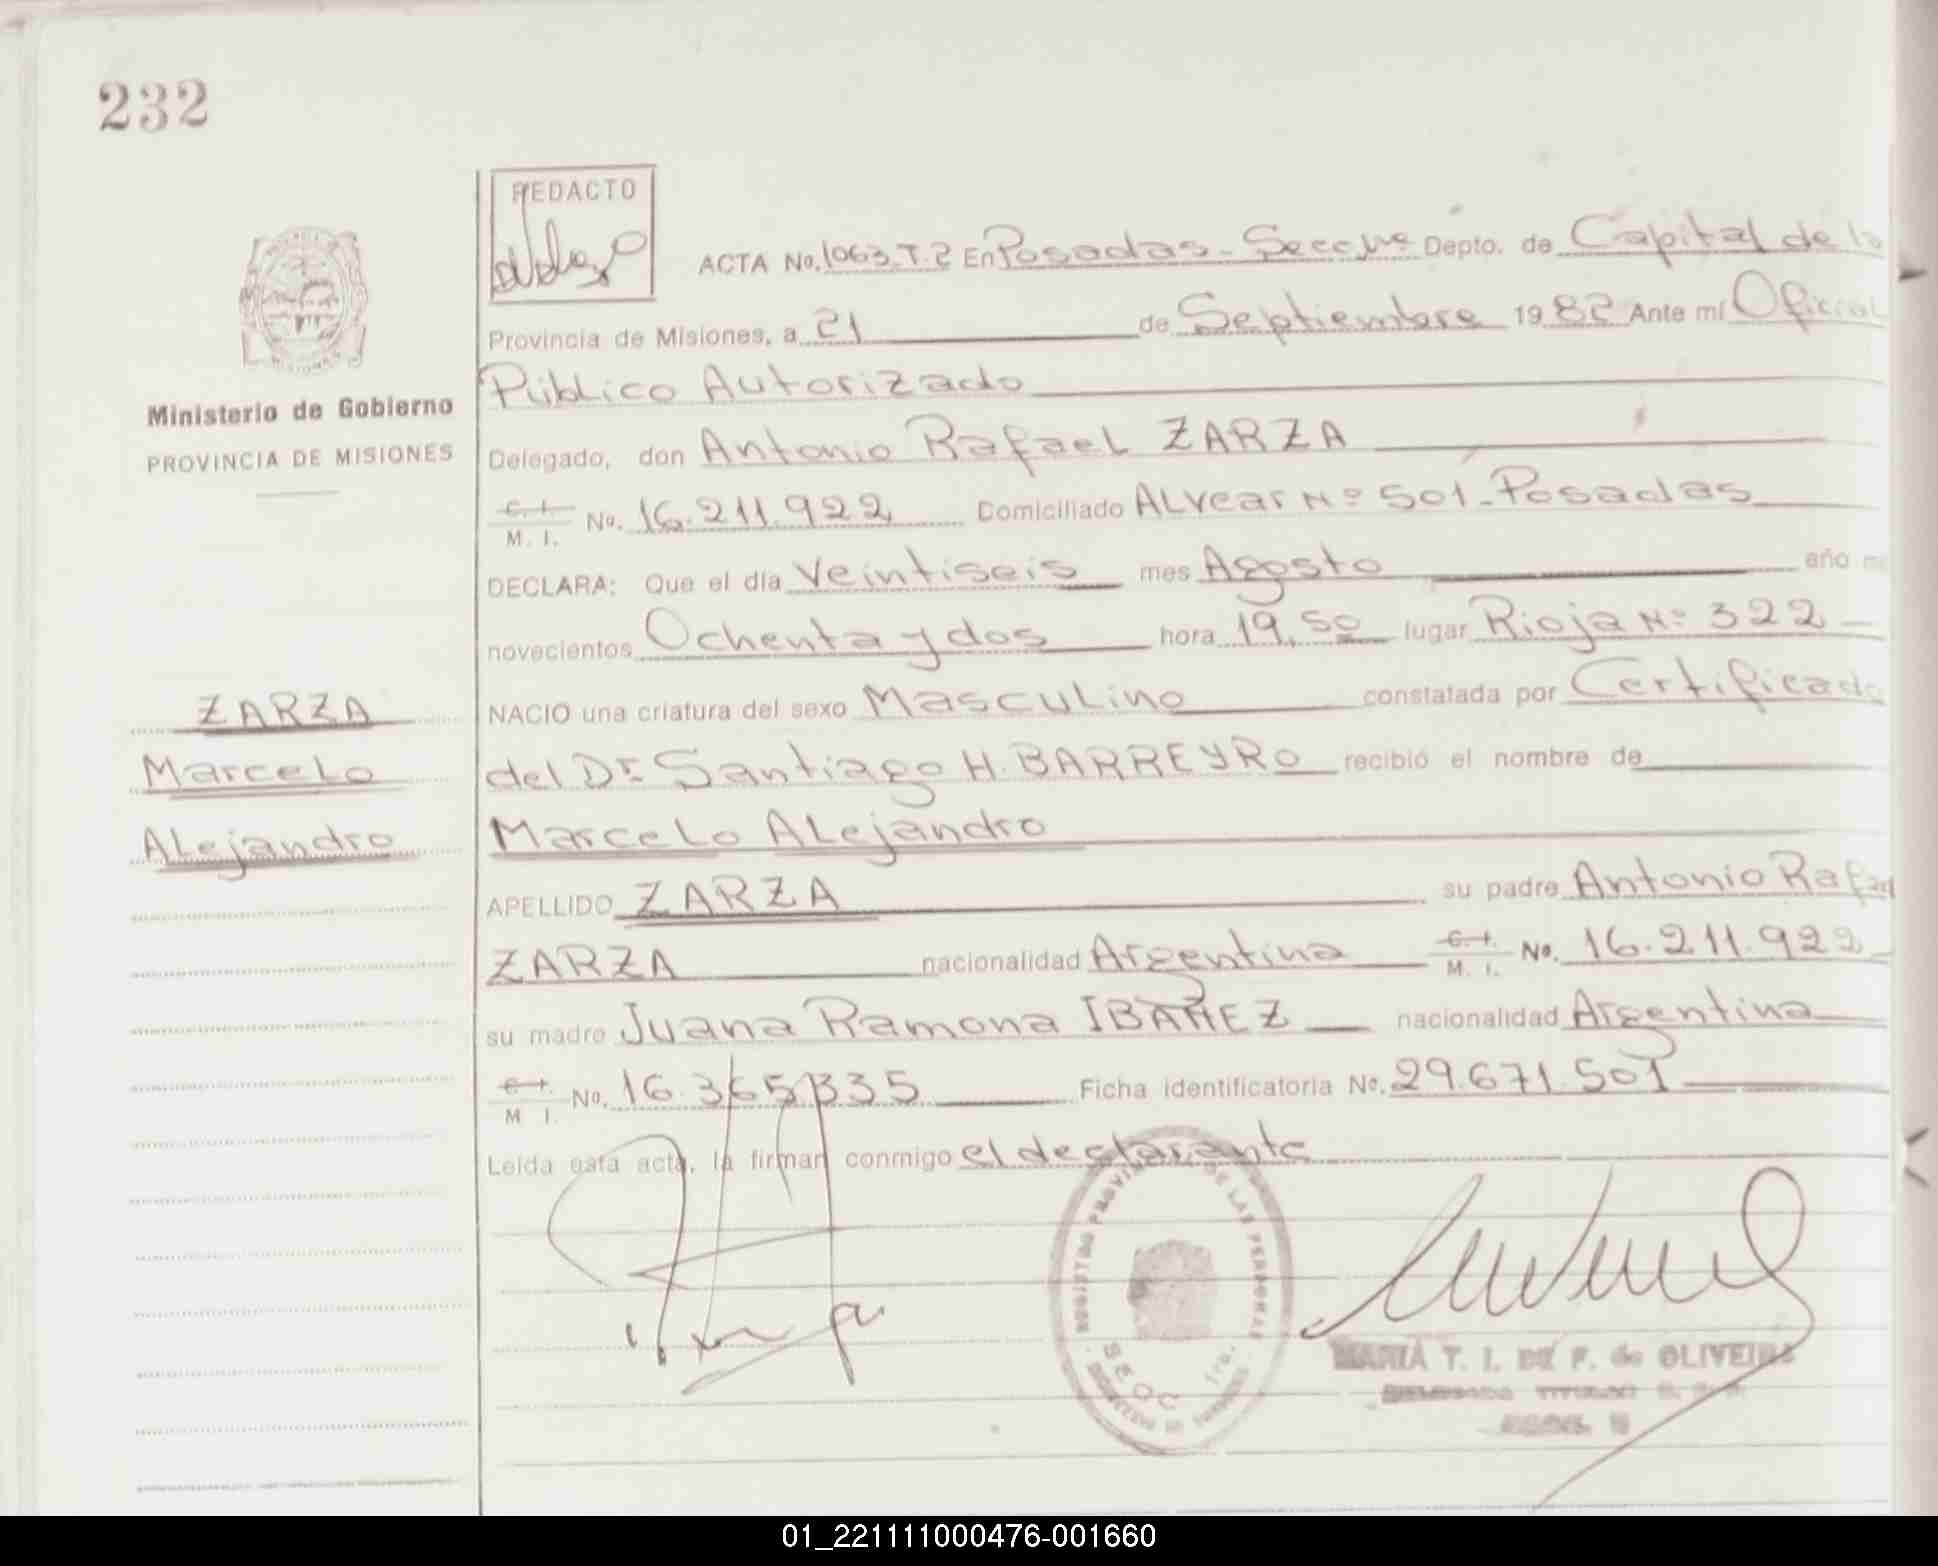 232
REDACTO
ACTA No. 1063.T.2 En Posadas - Secc. Depto. de Capital de la
Provincia de Misiones, a 21 de Septiembre 1982 Ante mí Oficial
Público Autorizado
Ministerio de Gobierno
PROVINCIA DE MISIONES
Delegado, don Antonio Rafael ZARZA
C. I.
M. I. No. 16.211.922 Domiciliado ALvear Nº 501 - Posadas
DECLARA: Que el día Veintiseis mes Agosto año mi
novecientos Ochenta y dos hora 19,50 lugar Rioja Nº 322
ZARZA
Marcelo
Alejandro
NACIO una criatura del sexo Masculino constatada por Certificado
del Dr. Santiago H. BARREYRO recibió el nombre de
Marcelo Alejandro
APELLIDO ZARZA su padre Antonio Rafael
ZARZA nacionalidad Argentina C. I.
M. I. No. 16.211.922
su madre Juana Ramona IBAÑEZ nacionalidad Argentina
C. I.
M I. No. 16.365.335 Ficha identificatoria No. 29.671.501
Leída esta acta, la firman conmigo el declarante
REGISTRO PROVINCIAL DE LAS PERSONAS
SECC 1ra.
MARIA T. I. DE F. de OLIVEIRA
01_221111000476-001660